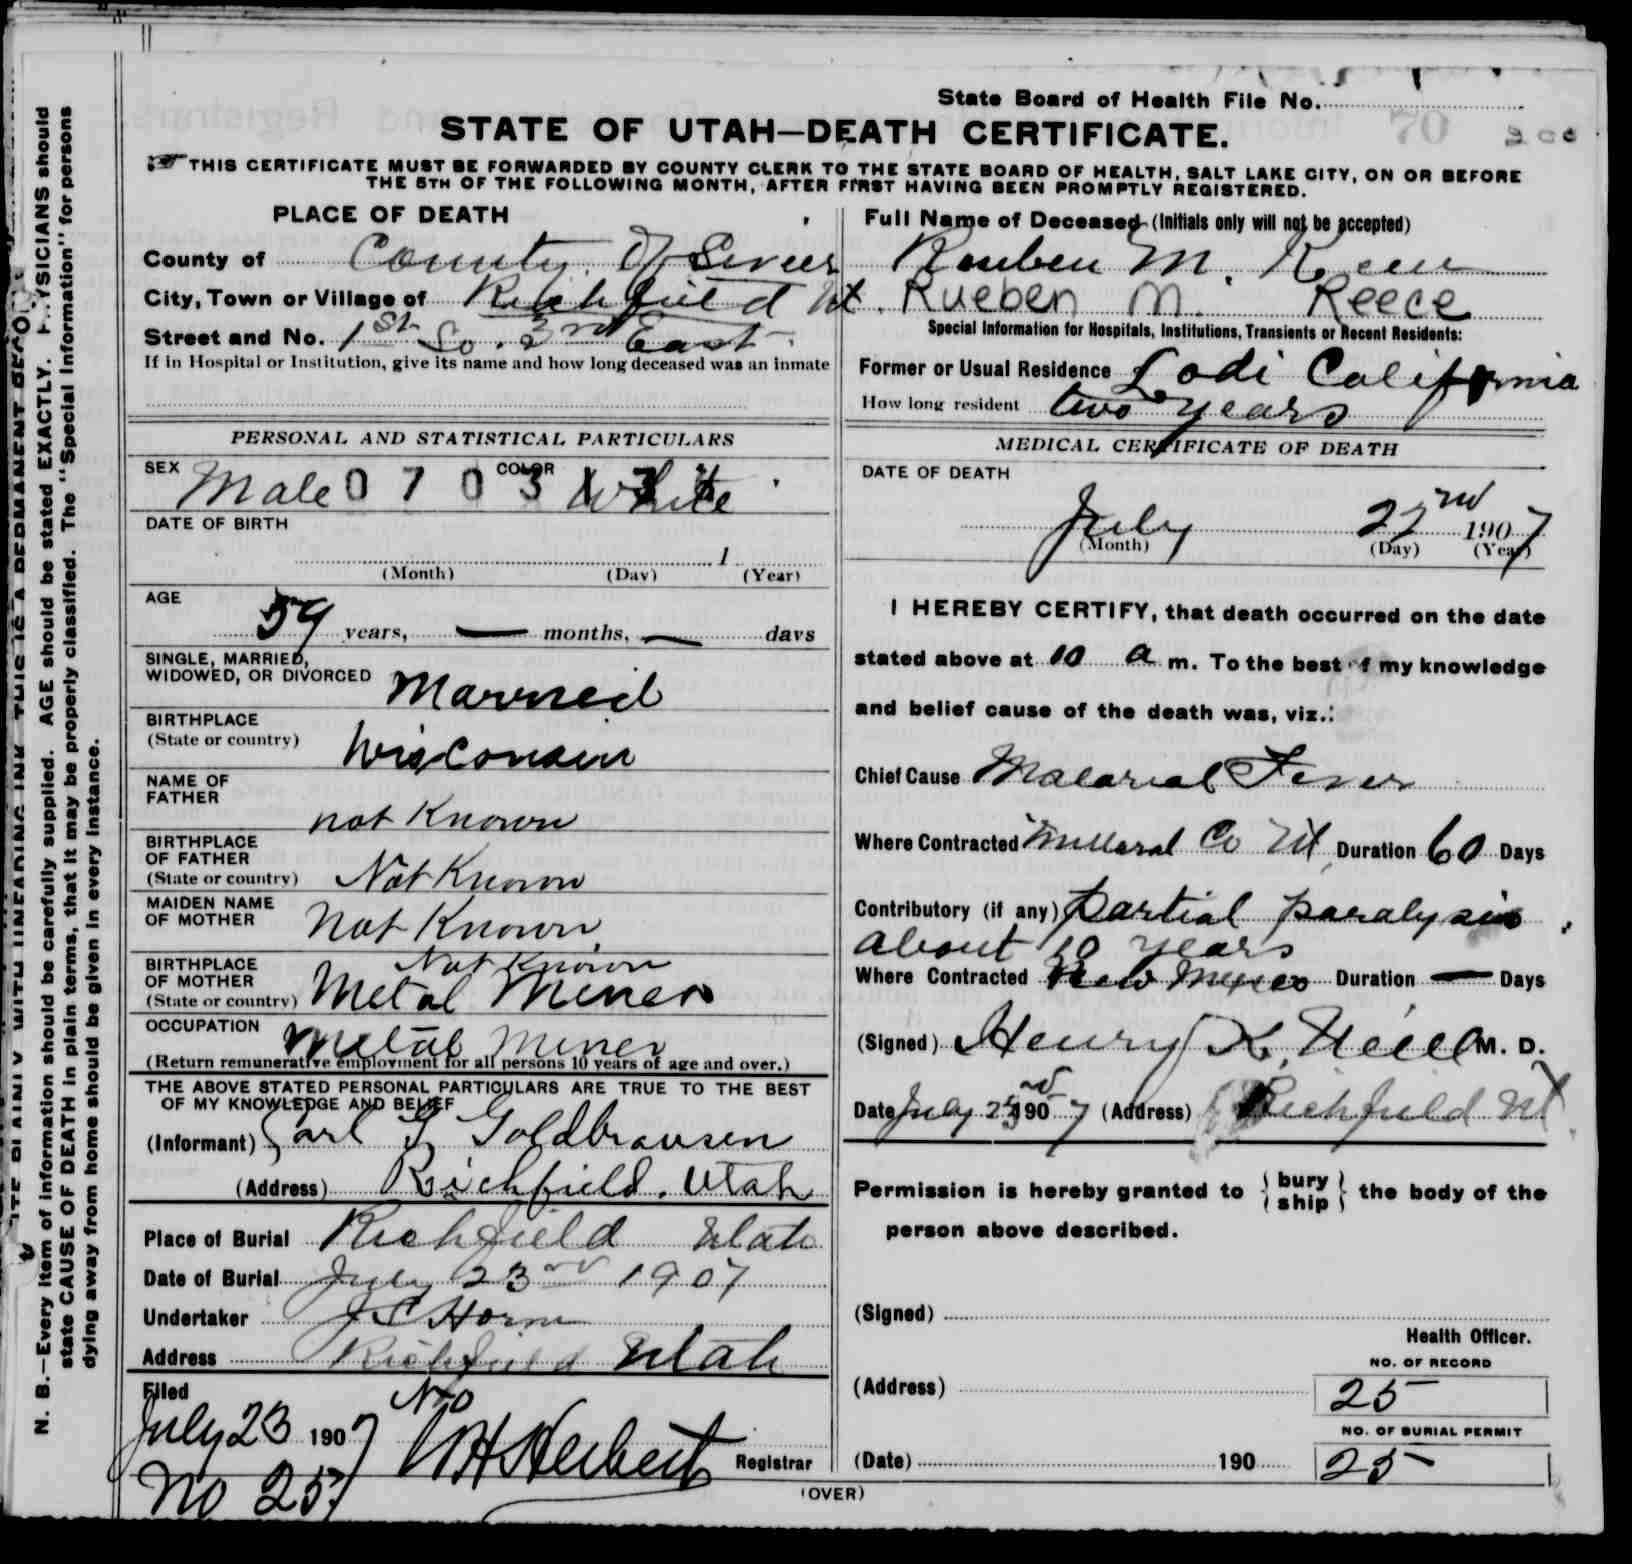 State Board of Health File No.
STATE OF UTAH—DEATH CERTIFICATE.
THIS CERTIFICATE MUST BE FORWARDED BY COUNTY CLERK TO THE STATE BOARD OF HEALTH, SALT LAKE CITY, ON OR BEFORE
THE 5TH OF THE FOLLOWING MONTH, AFTER FIRST HAVING BEEN PROMPTLY REGISTERED.
PLACE OF DEATH
County of County of Sevier
City, Town or Village of Richfield Ut.
Street and No. 1st So. 3rd East.
If in Hospital or Institution, give its name and how long deceased was an inmate
Full Name of Deceased (Initials only will not be accepted)
Reuben M.
Rueben M. Reece
Special Information for Hospitals, Institutions, Transients or Recent Residents:
Former or Usual Residence Lodi California
How long resident two years
PERSONAL AND STATISTICAL PARTICULARS
SEX Male COLOR White
0 7 0 3 1 3
DATE OF BIRTH
1
(Month) (Day) (Year)
AGE
59 years, — months, — days
SINGLE, MARRIED,
WIDOWED, OR DIVORCED Married
BIRTHPLACE
(State or country) Wisconsin
NAME OF
FATHER not Known
BIRTHPLACE
OF FATHER
(State or country) Not Known
MAIDEN NAME
OF MOTHER Not Known
BIRTHPLACE Not Known
OF MOTHER
(State or country) Metal Miner
OCCUPATION Metal Miner
(Return remunerative employment for all persons 10 years of age and over.)
THE ABOVE STATED PERSONAL PARTICULARS ARE TRUE TO THE BEST
OF MY KNOWLEDGE AND BELIEF
(Informant) Carl G Goldbransen
(Address) Richfield, Utah
Place of Burial Richfield Utah
Date of Burial July 23rd 1907
Undertaker J C Horne
Address Richfield Utah
Filed
July 23 1907
No 25
W H Herbert Registrar
MEDICAL CERTIFICATE OF DEATH
DATE OF DEATH
July 22nd 1907
(Month) (Day) (Year)
I HEREBY CERTIFY, that death occurred on the date
stated above at 10 a m. To the best of my knowledge
and belief cause of the death was, viz.:
Chief Cause Malarial Fever
Where Contracted Millard Co Ut Duration 60 Days
Contributory (if any) Partial paralysis
about 10 years
Where Contracted New Mexico Duration — Days
(Signed) Henry K. Neill M. D.
Date July 1907 (Address) Richfield Ut
Permission is hereby granted to { bury
ship } the body of the
person above described.
(Signed)
Health Officer.
(Address)
NO. OF RECORD
25
NO. OF BURIAL PERMIT
25
(Date) 190
(OVER)
N. B.—Every item of information should be carefully supplied. AGE should be stated EXACTLY. PHYSICIANS should
state CAUSE OF DEATH in plain terms, that it may be properly classified. The "Special Information" for persons
dying away from home should be given in every instance.